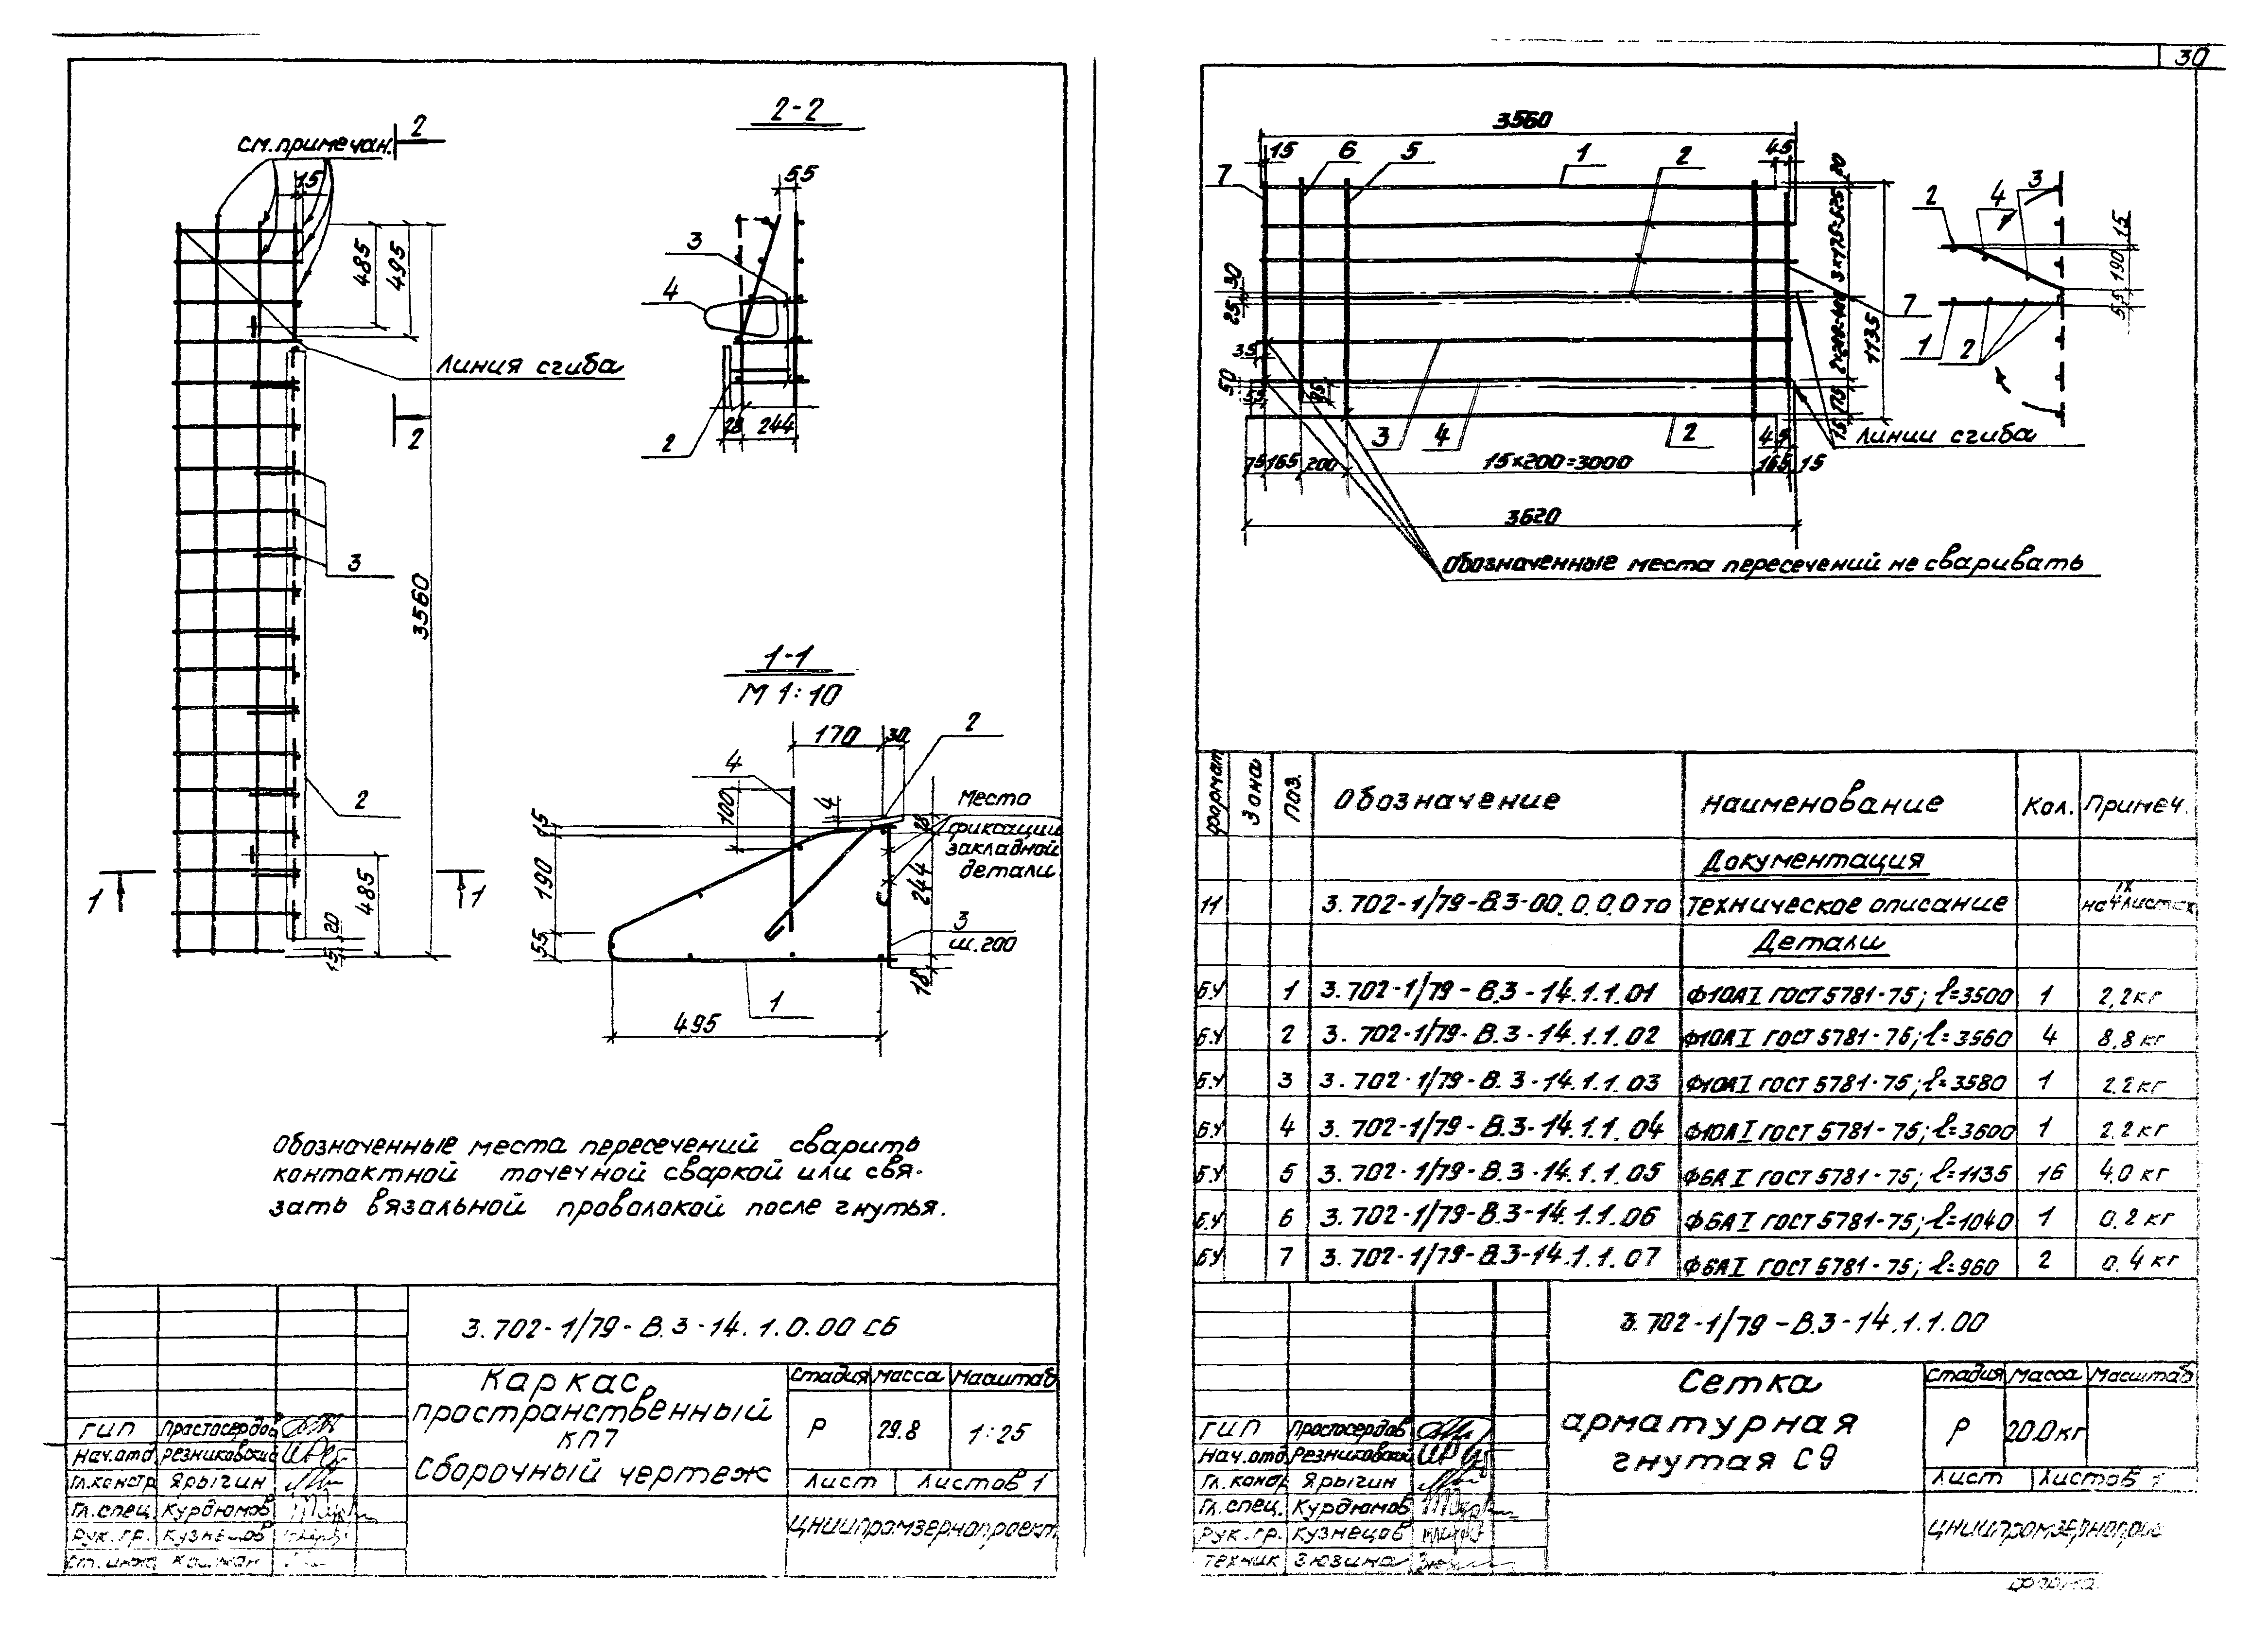 30
см.примечан.
2
15
485
495
линия сгиба
2
3
3560
2
1
1
485
20
15
2-2
55
3
4
2
28
244
1-1
М 1:10
170
30
2
4
100
4
Места
фиксации
закладной
детали
15
190
55
28
244
3
ш.200
18
1
495
Обозначенные места пересечений сварить
контактной точечной сваркой или свя-
зать вязальной проволокой после гнутья.
3.702-1/79-В.3-14.1.0.00 СБ
Каркас
пространственный
КП7
Сборочный чертеж
Стадия Масса Масштаб
Р 29.8 1:25
Лист Листов 1
ЦНИИпромзернопроект
ГИП Простосердов
Нач.отд Резниковский
Гл.констр Ярыгин
Гл.спец. Курдюмов
Рук.гр. Кузнецов
3560
15 6 5 1 2 45 20
7
3×175=525
30
25
35
50
55
95
2×200=400
1135
175
15
7
3 4 2 45
линии сгиба
75 165 200 15×200=3000 165 15
3620
Обозначенные места пересечений не сваривать
2 4 3
15
190
55
1 2
Формат Зона Поз. Обозначение Наименование Кол. Примеч.
Документация
11 3.702-1/79-В.3-00.0.0.0 ТО Техническое описание
Детали
Б.Ч 1 3.702-1/79-В.3-14.1.1.01 Ф10АI ГОСТ 5781-75; ℓ=3500 1 2,2 кг
Б.Ч 2 3.702-1/79-В.3-14.1.1.02 Ф10АI ГОСТ 5781-75; ℓ=3560 4 8,8 кг
Б.Ч 3 3.702-1/79-В.3-14.1.1.03 Ф10АI ГОСТ 5781-75; ℓ=3580 1 2.2 кг
Б.Ч 4 3.702-1/79-В.3-14.1.1.04 Ф10АI ГОСТ 5781-75; ℓ=3600 1 2.2 кг
Б.Ч 5 3.702-1/79-В.3-14.1.1.05 Ф6АI ГОСТ 5781-75; ℓ=1135 16 4.0 кг
Б.Ч 6 3.702-1/79-В.3-14.1.1.06 Ф6АI ГОСТ 5781-75; ℓ=1040 1 0.2 кг
БЧ 7 3.702-1/79-В.3-14.1.1.07 Ф6АI ГОСТ 5781-75; ℓ=960 2 0.4 кг
3.702-1/79-В.3-14.1.1.00
Сетка
арматурная
гнутая С9
Стадия Масса Масштаб
Р 20.0 кг
Лист Листов 1
ГИП Простосердов
Нач.отд Резниковский
Гл.констр Ярыгин
Гл.спец. Курдюмов
Рук.гр. Кузнецов
Техник Зюзина